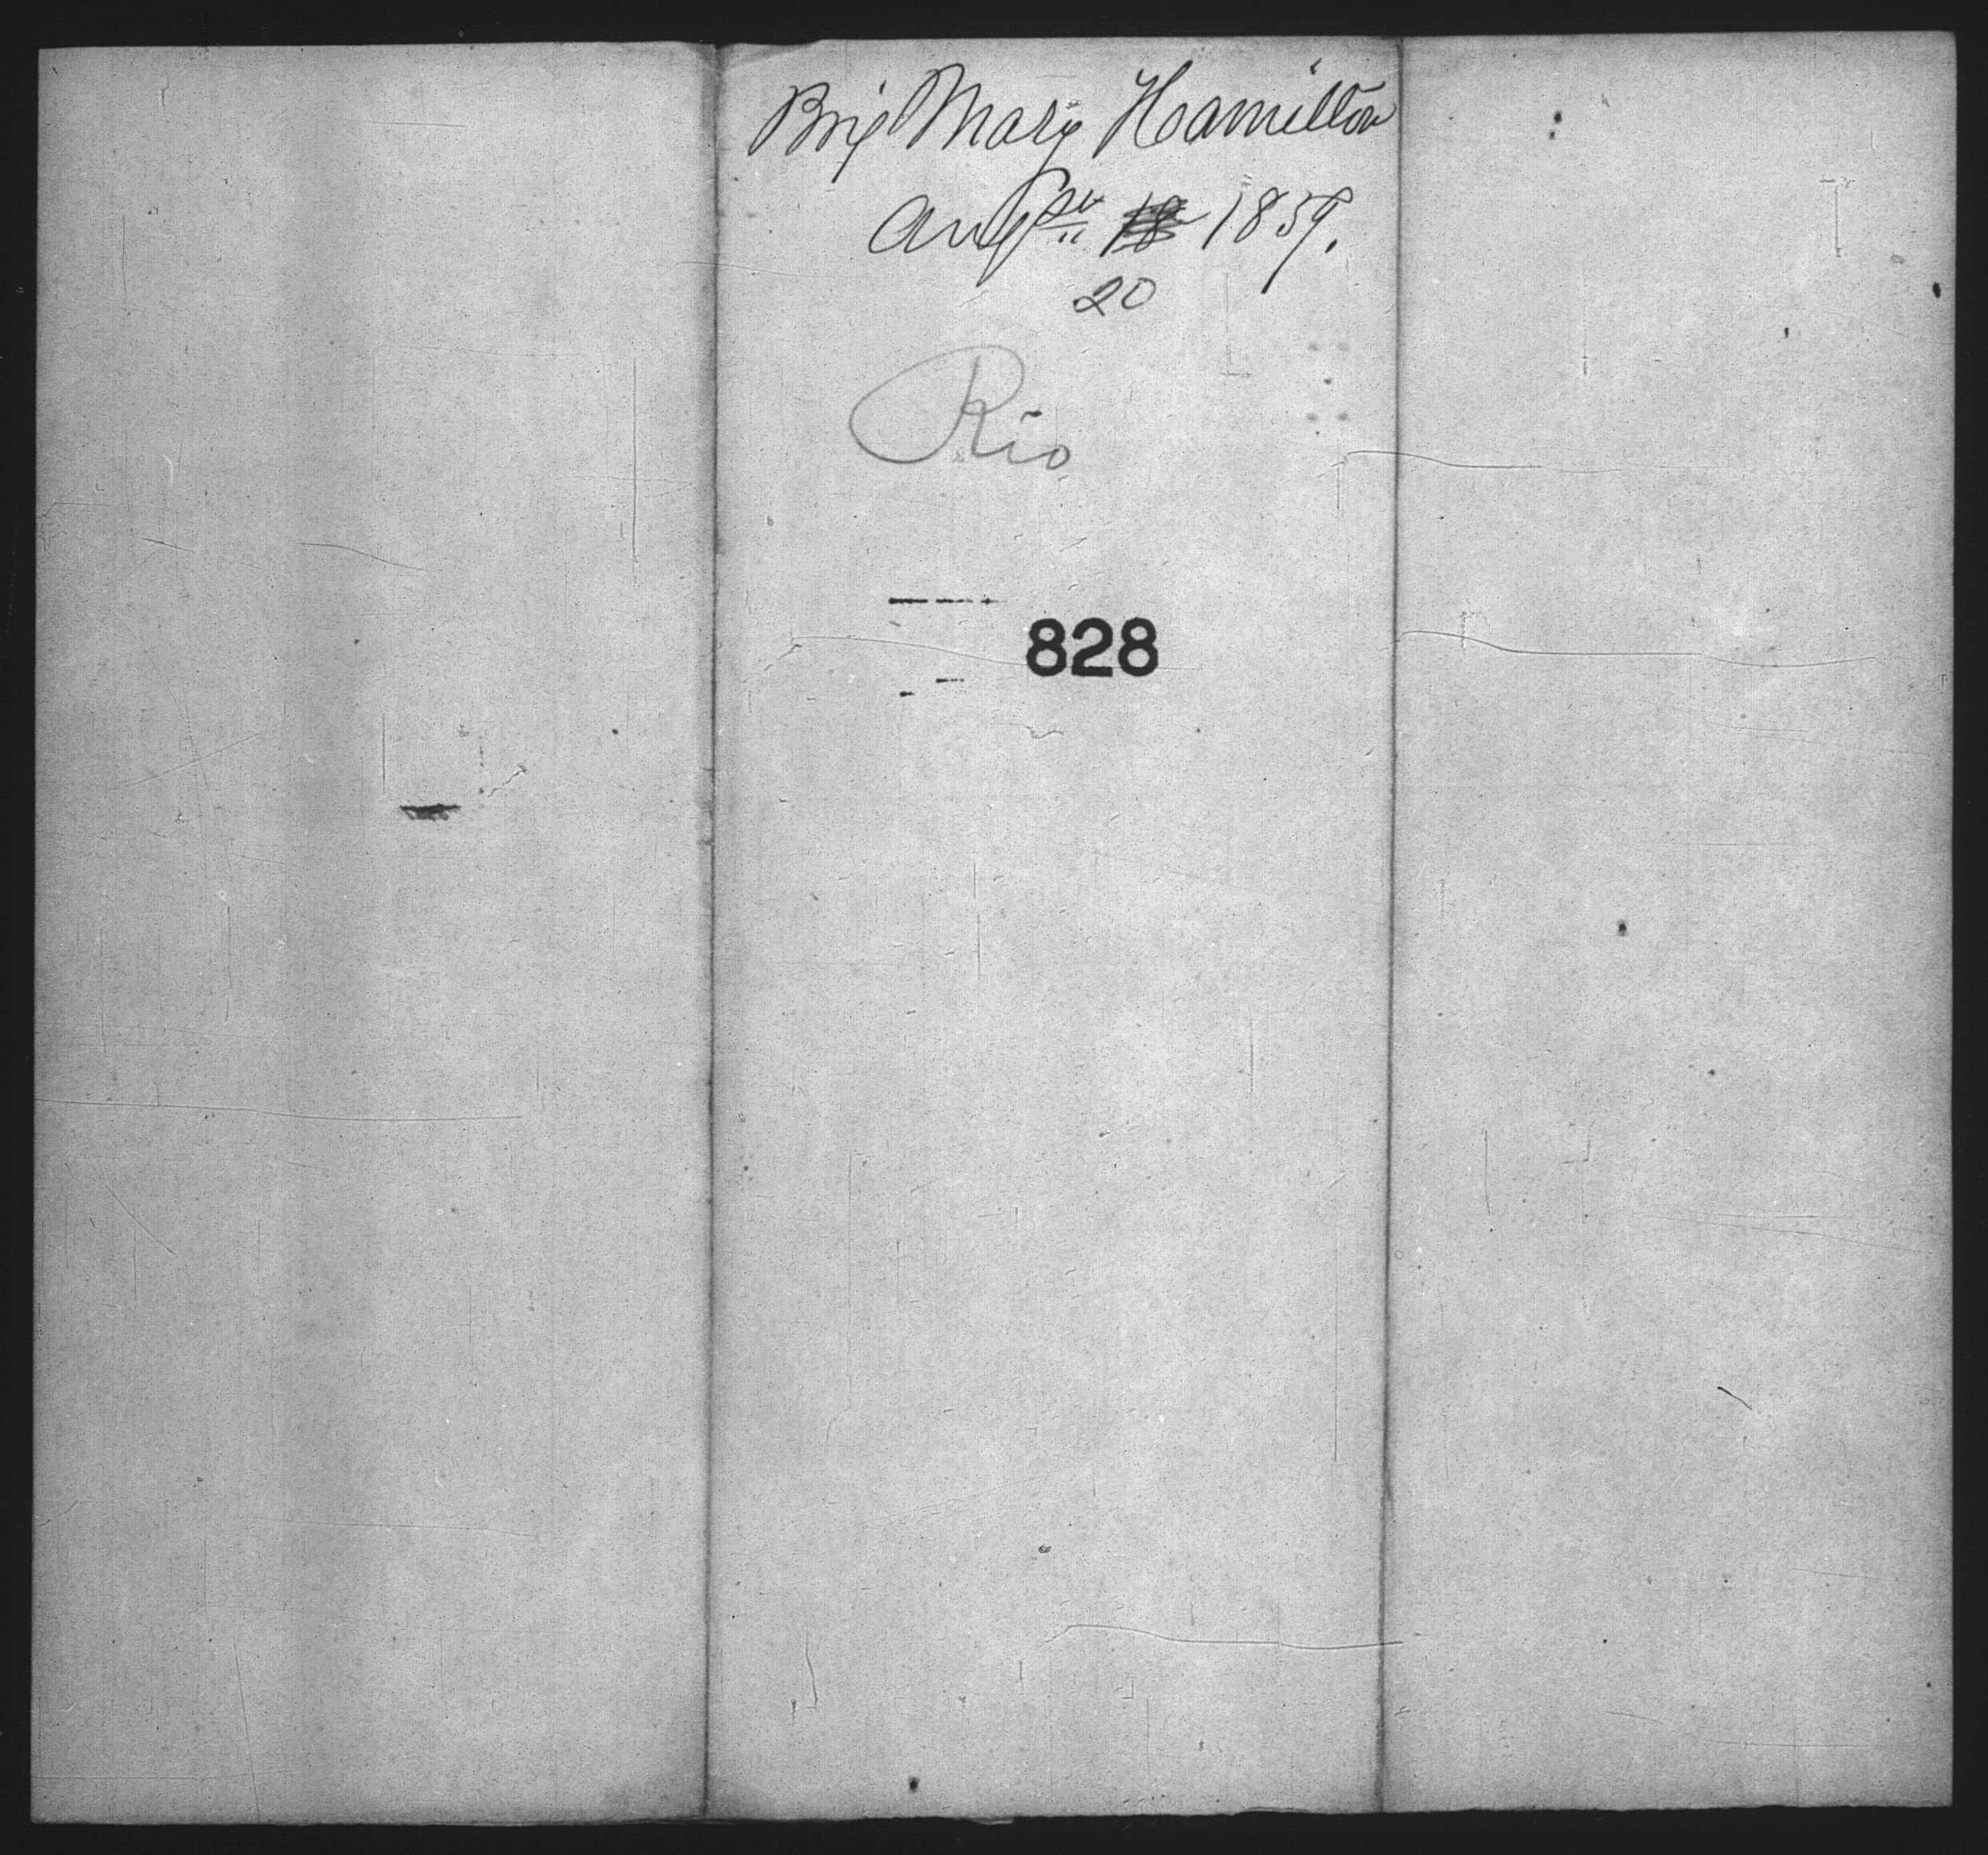 Brig Mary Hamilton
Augst 18 1859.
20
Rio
828